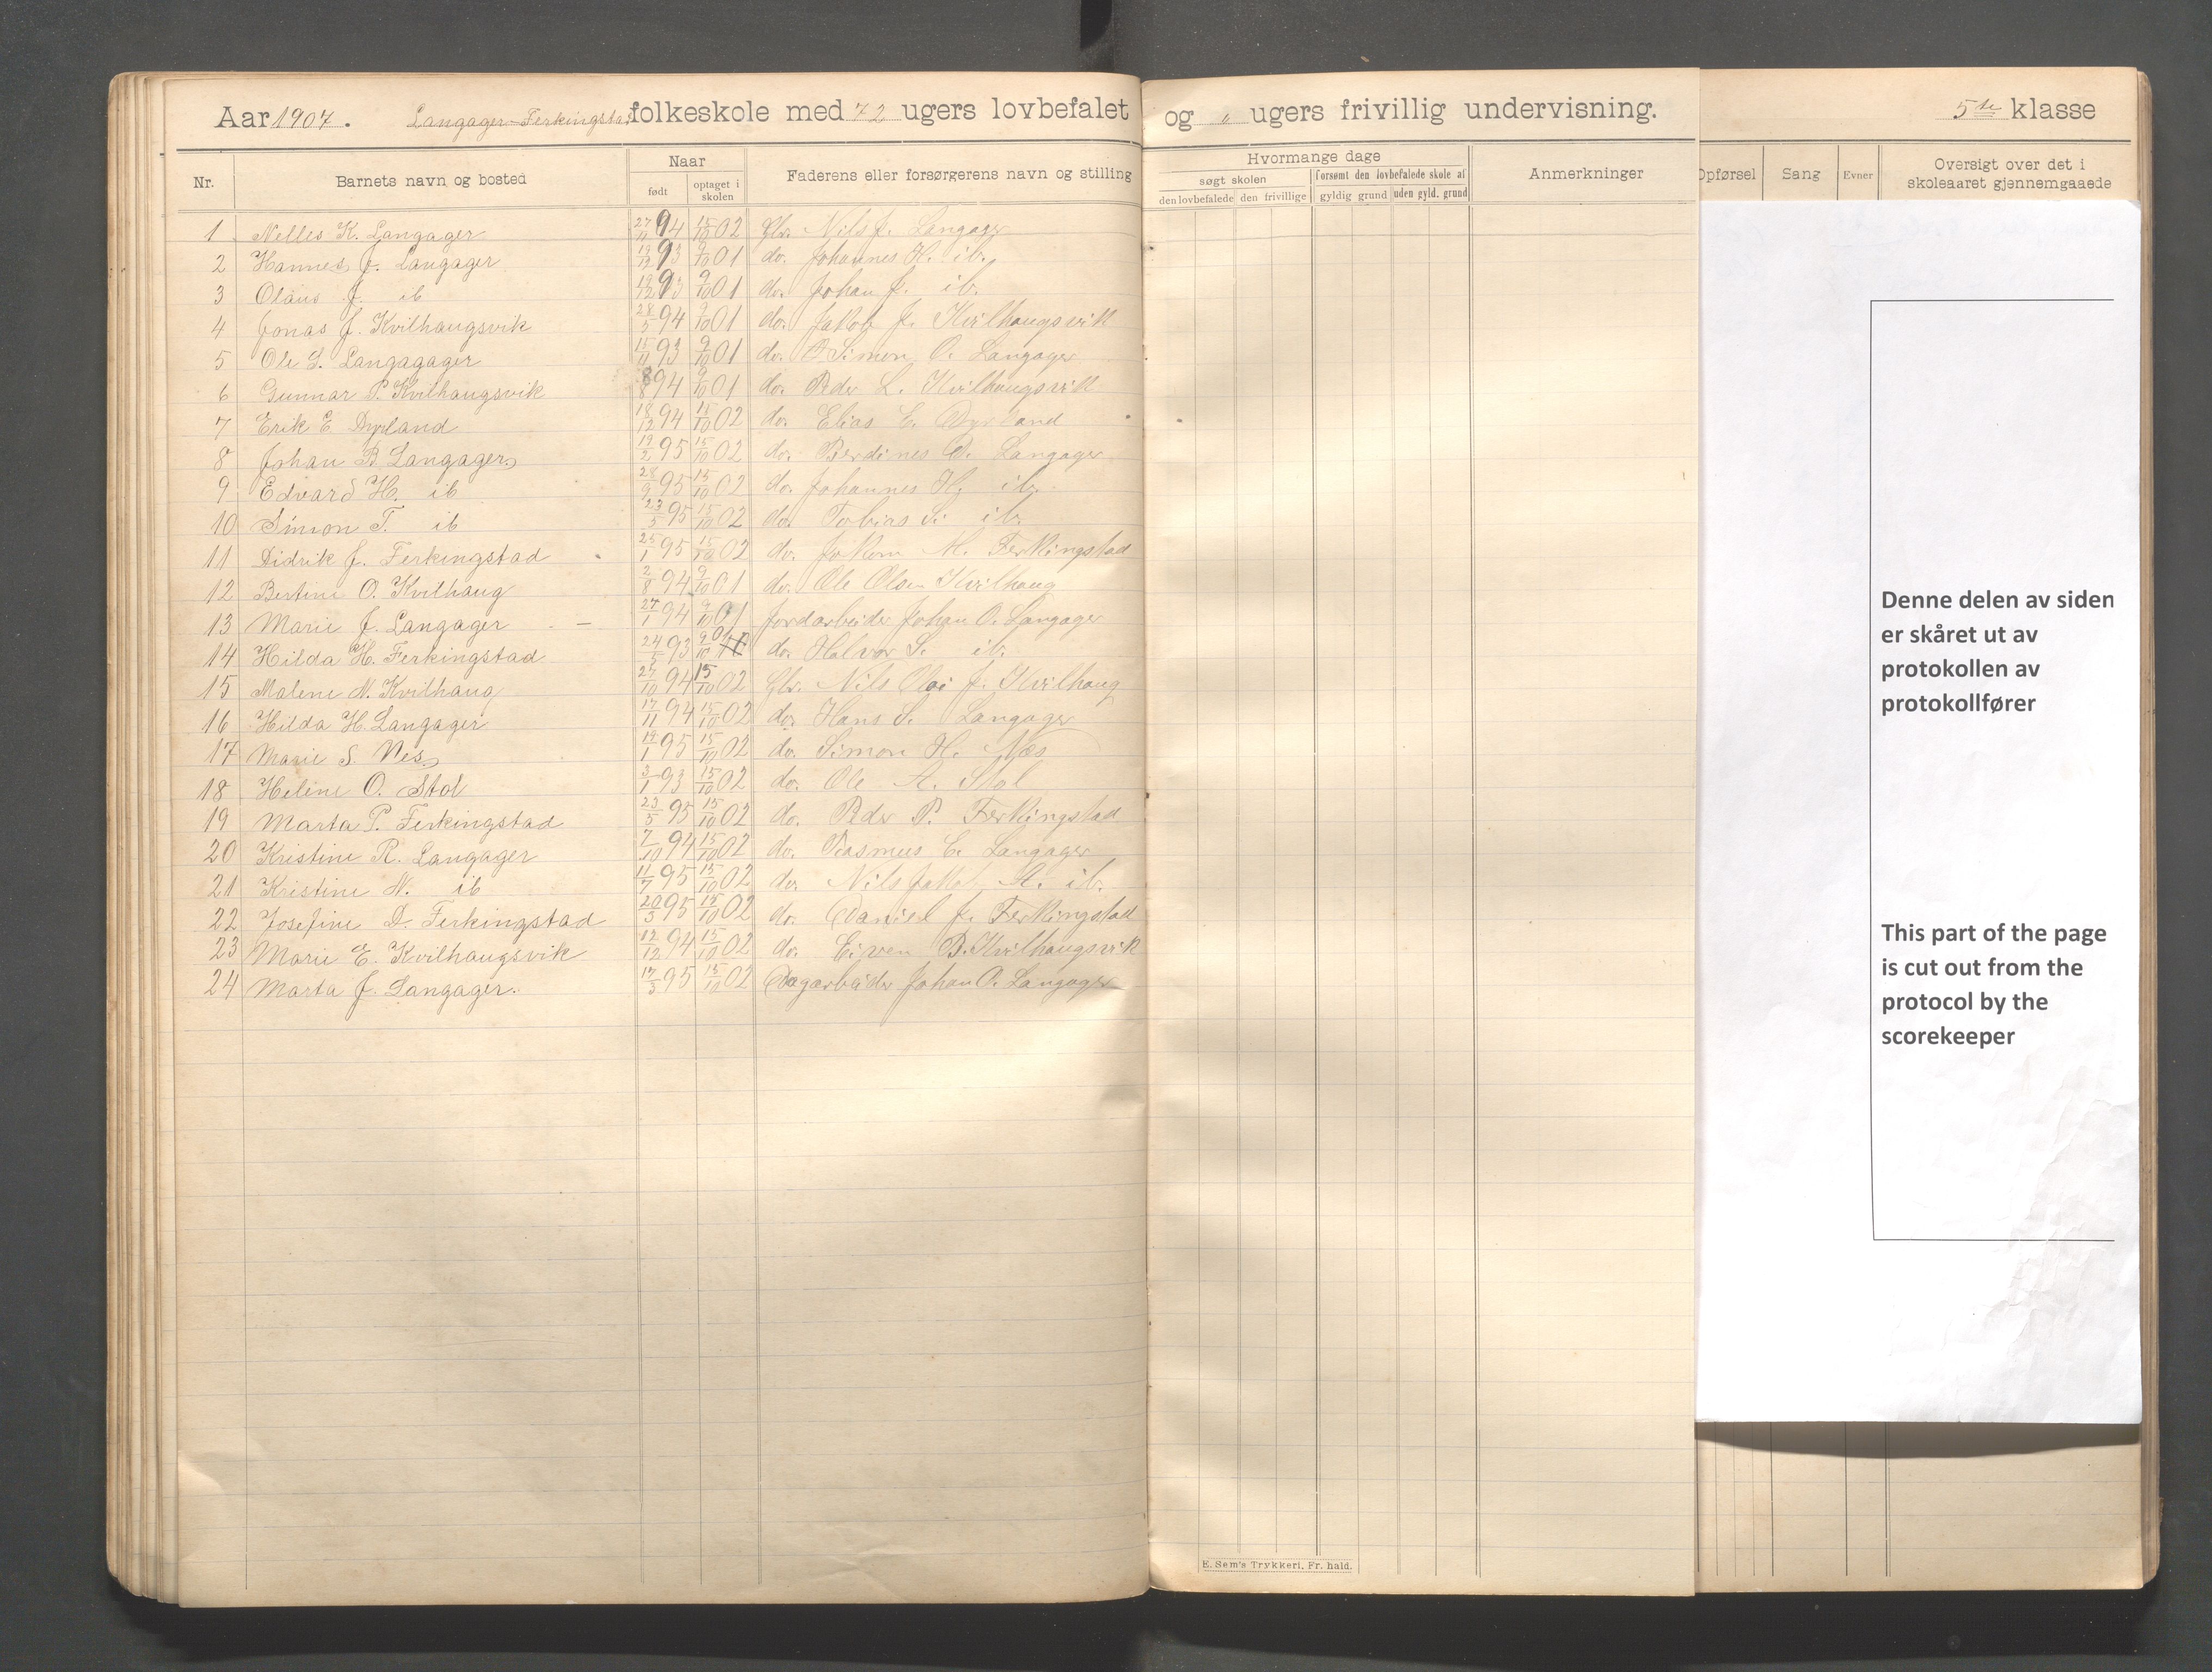 Aar 1907. Langager-Ferkingstad folkeskole med 72 ugers lovbefalet og „ ugers frivillig undervisning. 5te klasse
Nr. Barnets navn og bosted Naar født optaget i skolen Faderens eller forsørgerens navn og stilling
Hvormange dage
søgt skolen
den lovbefalede den frivillige
forsømt den lovbefalede skole af
gyldig grund uden gyld. grund
Anmerkninger
Opførsel Sang Evner Oversigt over det i skoleaaret gjennemgaaede
1 Nelles K. Langager 27/11 94 15/10 02 Gbr. Nils J. Langager
2 Hannes J. Langager 93 9/10 01 do. Johannes H. ib.
3 Olaus J. ib 19/12 93 9/10 01 do. Johan J. ib.
4 Jonas J. Kvilhaugsvik 28/5 94 9/10 01 do. Jakob J. Kvilhaugsvik
5 Ole S. Langagager 15/11 93 9/10 01 do. Simon O. Langager
6 Gunnar P. Kvilhaugsvik 8/8 94 9/10 01 do. Peder L. Kvilhaugsvik
7 Erik E Dyrland 18/12 94 15/10 02 do. Elias E. Dyrland
8 Johan B Langager 19/2 95 15/10 02 do. Berdines O. Langager
9 Edvard H. ib 28/9 95 15/10 02 do. Johannes H. ib.
10 Simon T. ib 23/5 95 15/10 02 do. Tobias S. ib.
11 Didrik J. Ferkingstad 25/1 95 15/10 02 do. Jakom M. Ferkingstad
12 Bertine O. Kvilhaug 2/8 94 9/10 01 do. Ole Olsen Kvilhaug
13 Marie J. Langager - 27/1 94 9/10 01 Jordarbeider Johan O. Langager
14 Hilda H. Ferkingstad 24/5 93 9/10 01 do. Halvor S. ib.
15 Malene N. Kvilhaug 27/10 94 15/10 02 Gbr. Nils Olai J. Kvilhaug
16 Hilda H. Langager 17/11 94 15/10 02 do. Hans S. Langager
17 Marie S. Nes 19/1 95 15/10 02 do. Simon H. Næs
18 Heline O. Stol 3/1 93 15/10 02 do. Ole A. Stol
19 Marta P. Ferkingstad 23/5 95 15/10 02 do. Peder P. Ferkingstad
20 Kristine R. Langager 7/10 94 15/10 02 do. Rasmus E. Langager
21 Kristine N. ib 11/7 95 15/10 02 do. Nils Jakob A. ib.
22 Josefine D. Ferkingstad 20/3 95 15/10 02 do. Daniel J. Ferkingstad
23 Marie E. Kvilhaugsvik 12/12 94 15/10 02 do. Eiven B. Kvilhaugsvik
24 Marta J. Langager. 17/5 95 15/10 02 Dagarbeider Johan O. Langager
E. Sem's Trykkeri, Fr. hald.
Denne delen av siden
er skåret ut av
protokollen av
protokollfører
This part of the page
is cut out from the
protocol by the
scorekeeper